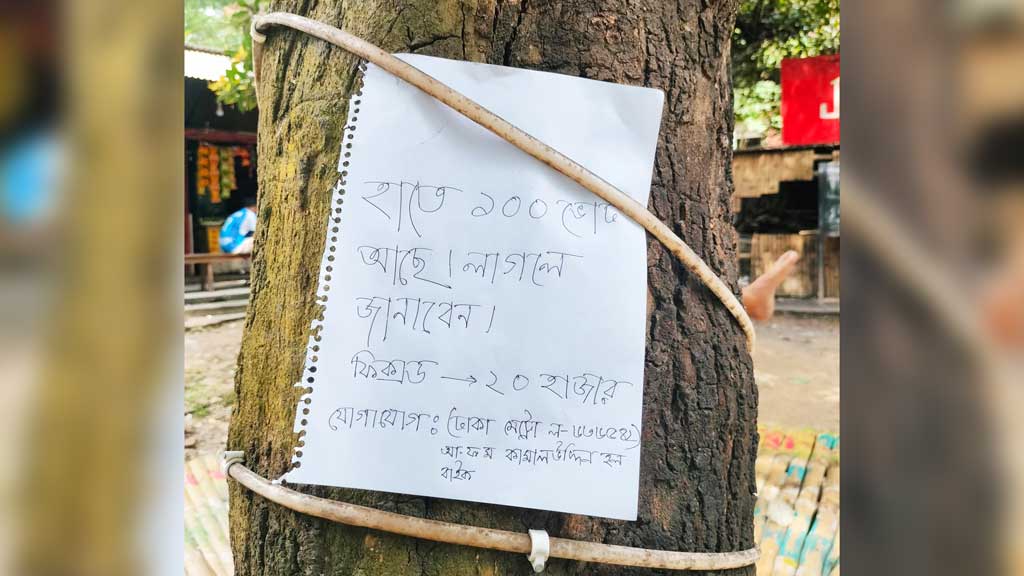 হাতে ১০০ ভোট
আছে। লাগলে
জানাবেন।
ফিক্সড → ২০ হাজার
যোগাযোগ : (ঢাকা মেট্রো ল-
আ.ফ.ম কামালউদ্দিন হল
বাইক